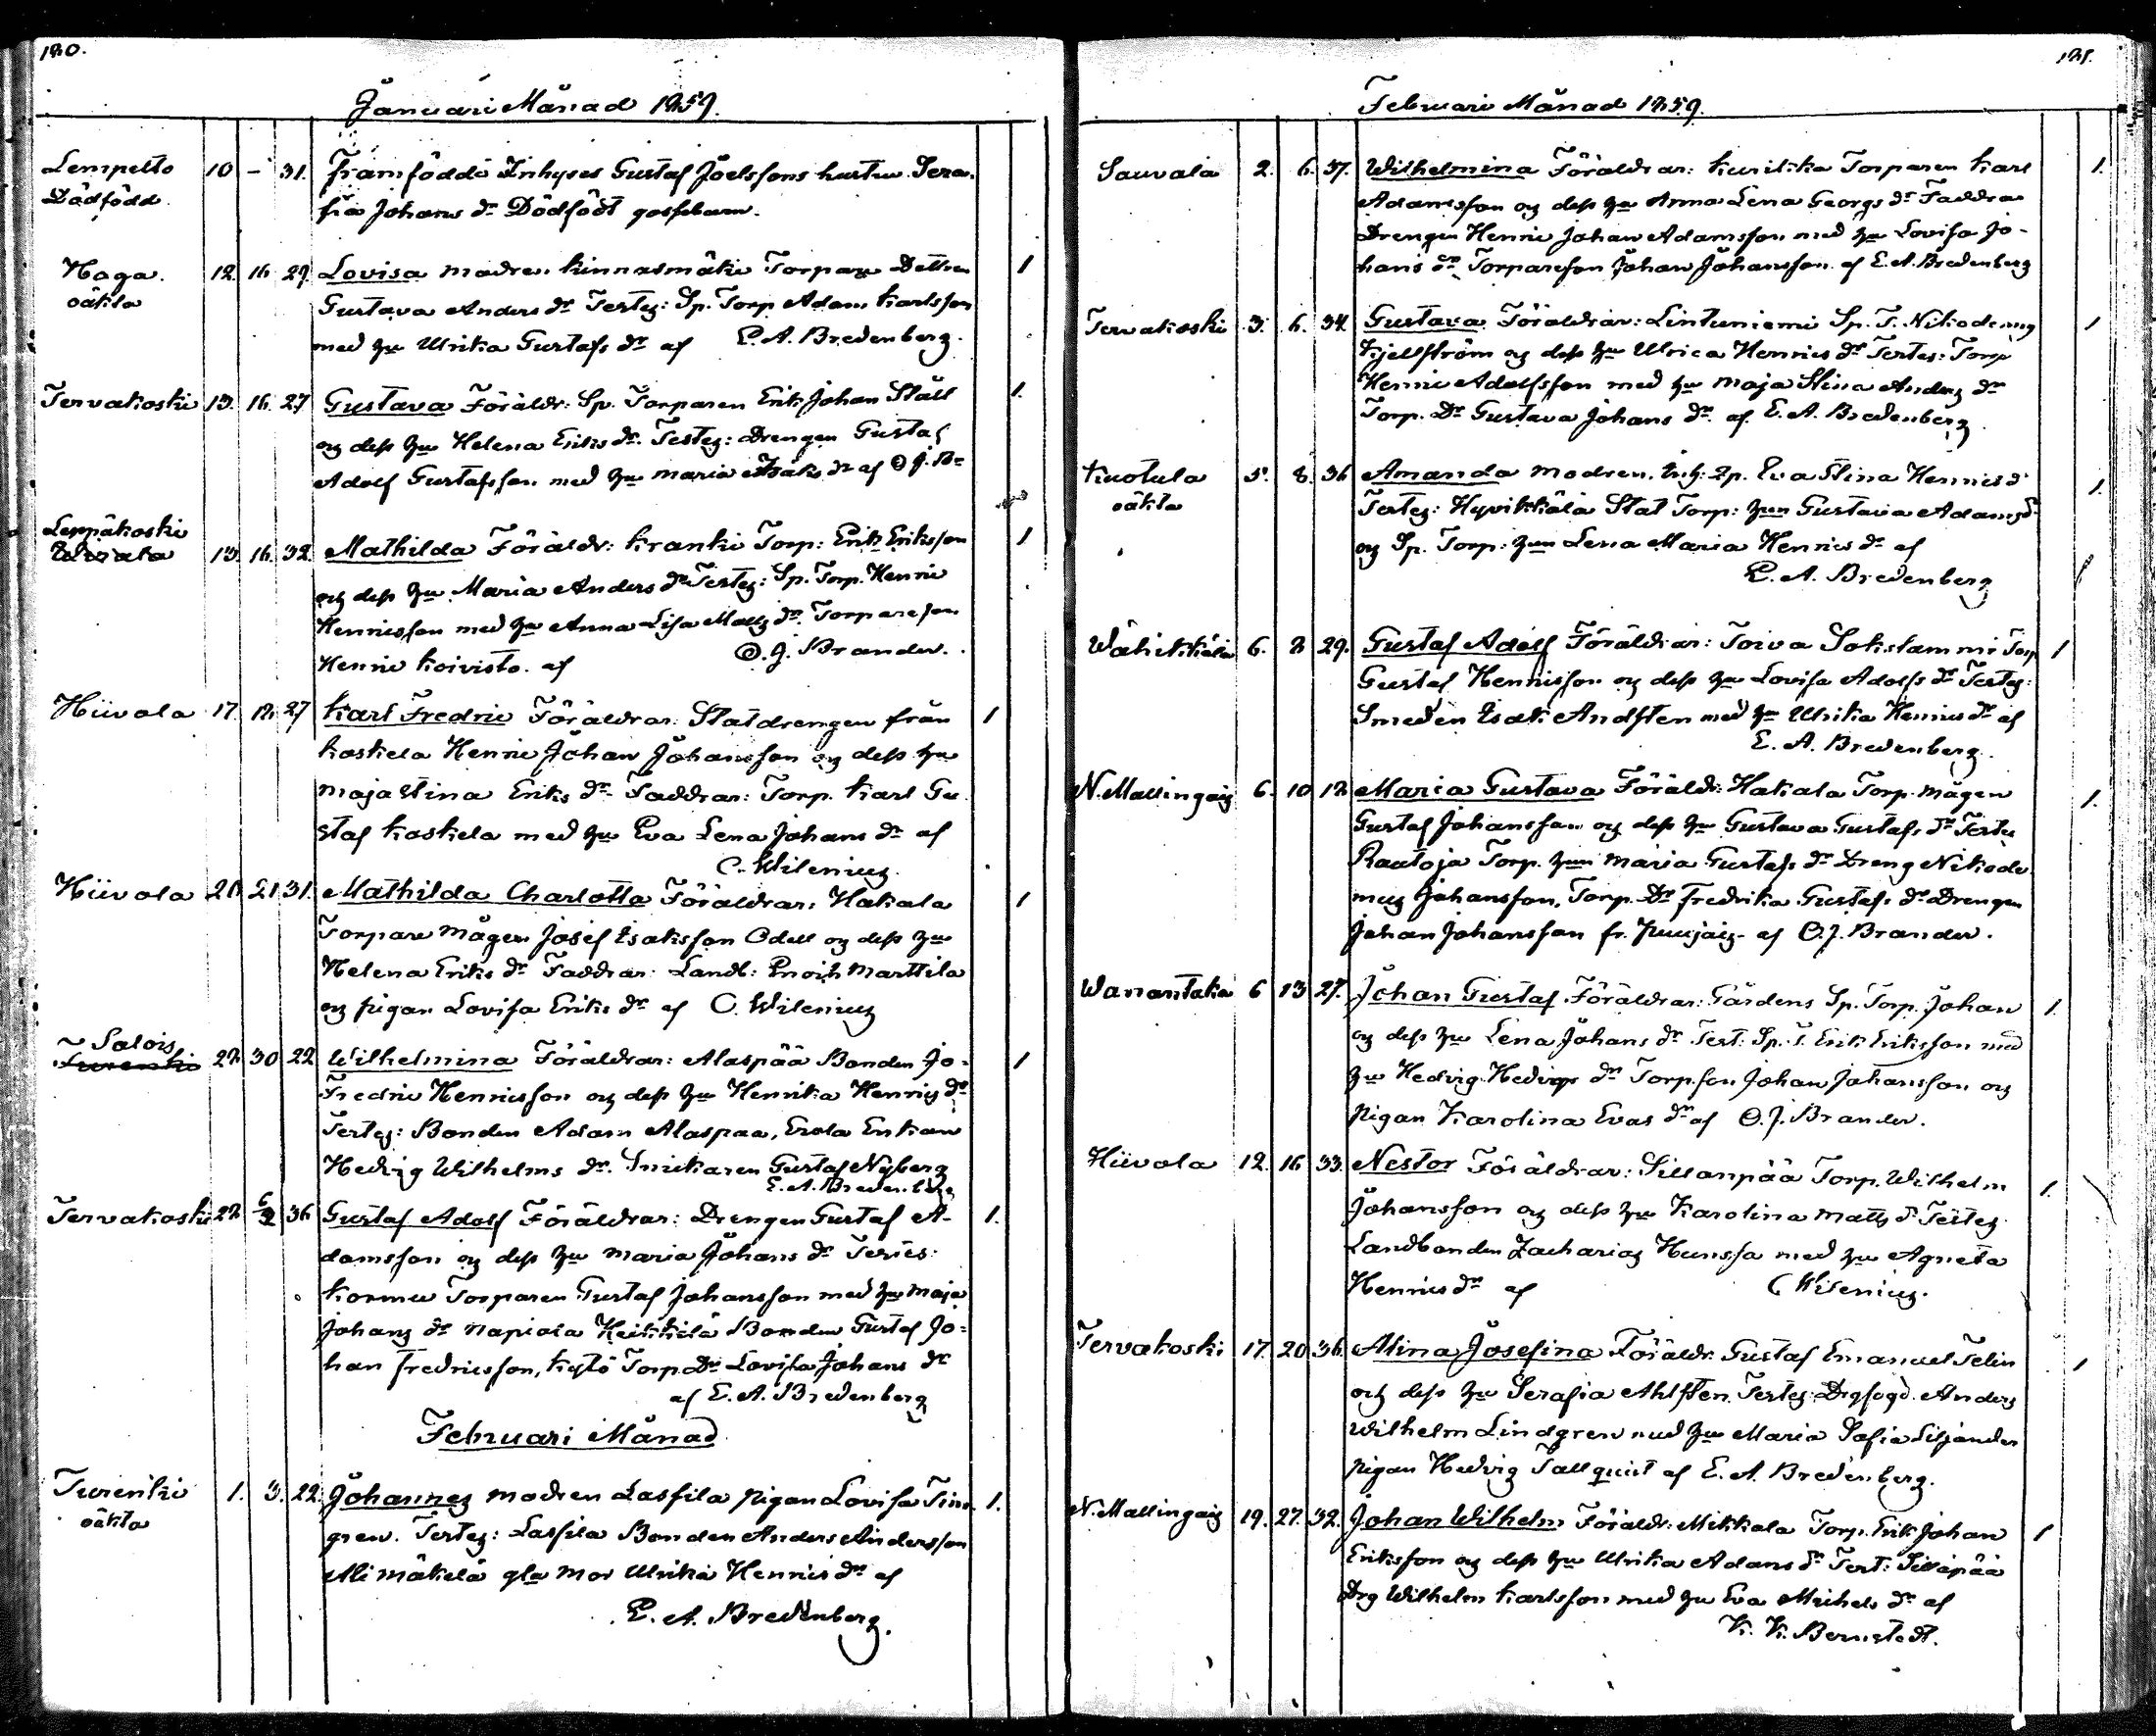 180.
Januari Månad 1859.
Lempelto 10 – 31. Framfödde Inhyses Gustaf Joelssons hustru Sera-
Dödfödd. fia Johans dr Dödfödt gossebarn.
Haga. 12. 16. 29. Lovisa modren Kinnasmäki Torpare Dottren 1
oäkta Gustava Anders dr Testes: Sp. Torp Adam Karlsson
med hu Ulrika Gustafs dr af E. A. Bredenberg.
Tervakoski 13. 16. 27 Gustava Föräldr: Sp. Torparen Erik Johan Ståll 1.
og dess hu Helena Eriks dr. Testes: Drengen Gustaf
Adolf Gustafsson med hu Maria Isaks dr af O J. Br
Leppäkoski
13. 16. 32. Mathilda Föräldr: Kranki Torp: Erik Eriksson 1
og dess hu Maria Anders dr Testes: Sp. Torp. Henric
Henricsson med hu Anna Lisa Matts dr. Torpareson
Henric Koivisto. af O. J. Brander.
Hiivola 17. 18. 27 Karl Fredric Föräldrar: Statdrengen från 1
Koskela Henric Johan Johansson og dess hu
Maja Stina Eriks dr Faddrar: Torp. Karl Gu
staf Koskela med hu Eva Lena Johans dr af
C. Wilenius.
Hiivola 20. 21 31. Mathilda Charlotta Föräldrar: Hakala 1
Torpare Mågen Josef Isaksson Odell og dess hu
Helena Eriks dr Faddrar: Landb: Enoch Marttila
og pigan Lovisa Eriks dr af C. Wilenius
Salois
Turenki 22. 30 22 Wilhelmina Föräldrar: Alaspää Bonden Jo- 1
Fredric Henricsson og dess hu Henrika Henrics dr
Testes: Bonden Adam Alaspää, Erola Enkan
Hedvig Wilhelms dr. Snickaren Gustaf Nyberg
E. A. Bredenberg
Tervakoski 22 6/2 36 Gustaf Adolf Föräldrar: Drengen Gustaf A- 1.
damsson og dess hu Maria Johans dr Testes:
Kormu Torparen Gustaf Johansson med hu Maja
Johans dr Napiala Heikkilä Bonden Gustaf Jo-
han Fredricsson, Kytö Torp. Dr Lovisa Johans dr
af E. A. Bredenberg
Februari Månad
Turenki 1. 3. 22. Johannes modren Lassila pigan Lovisa Tim 1.
oäkta gren. Testes: Lassila Bonden Anders Andersson
Alimäkelä gla Mor Ulrika Henrics dr af
E. A. Bredenberg.
181.
Februari Månad 1859.
Sauvala 2. 6. 37. Wilhelmina Föräldrar: Kurikka Torparen Karl 1.
Adamsson og dess hu Anna Lena Georgs dr Faddra
Drengen Henric Johan Adamsson med hu Lovisa Jo-
hans dr Torpareson Johan Johansson af E. A. Bredenberg
Tervakoski 3. 6. 34. Gustava Föräldrar: Lintuniemi Sp. T. Nikodemus 1
Kjellström og dess hu Ulrica Henrics dr Testes: Torp
Henric Adolfsson med hu Maja Stina Anders dr
Torp. Dr Gustava Johans dr. af E. A. Bredenberg
Kuotula 5. 8. 36 Amanda Modren. Inh: Sp. Eva Stina Henrics d 1.
oäkta Testes: Hyvikkälä Stat Torp: hun Gustava Adams dr
og Sp. Torp: hun Lena Maria Henrics dr af
E. A. Bredenberg
Wähikkälä 6. 8 29. Gustaf Adolf Föräldrar: Toiva Sokslammi Torp 1
Gustaf Henricsson og dess hu Lovisa Adolfs dr Testes:
Smeden Isak Andsten med hu Ulrika Henrics dr af
E. A. Bredenberg.
N. Mallingais 6. 10 18 Maria Gustava Föräldr: Hakala Torp. Mågen 1.
Gustaf Johansson og dess hu Gustava Gustafs dr Testes
Raatoja Torp. hun Maria Gustafs dr Dreng Nikode
mus Johansson, Torp. Dr Fredrika Gustafs dr Drengen
Johan Johansson fr. Puujais af O. J. Brander.
Wanantaka 6 13 27. Johan Gustaf Föräldrar: Gårdens Sp. Torp. Johan 1.
og dess hu Lena Johans dr Test: Sp. T. Erik Eriksson med
hu Hedvig Hedvigs dr Torpson Johan Johansson og
Pigan Karolina Evas dr af O. J. Brander.
Hiivola 12. 16 33. Nestor Föräldrar: Sillanpää Torp. Wilhelm 1.
Johansson og dess hu Karolina Matts dr Testes
Landbonden Zacharias Hunssa med hu Agneta
Henrics dr af C Wilenius.
Tervakoski 17. 20 36. Alina Josefina Föräldr: Gustaf Emanuel Telin 1
og dess hu Serafia Ahlsten. Testes: Drgfogd. Anders
Wilhelm Lindgren med hu Maria Sofia Liljander
Pigan Hedvig Tallquist af E. A. Bredenberg.
N. Mallingais 19. 27. 32. Johan Wilhelm Föräldr: Mikkala Torp. Erik Johan 1
Eriksson og dess hu Ulrika Adams dr Test: Sillapää
Drg Wilhelm Karlsson med hu Eva Michels dr af
K. K. Bernstedt.